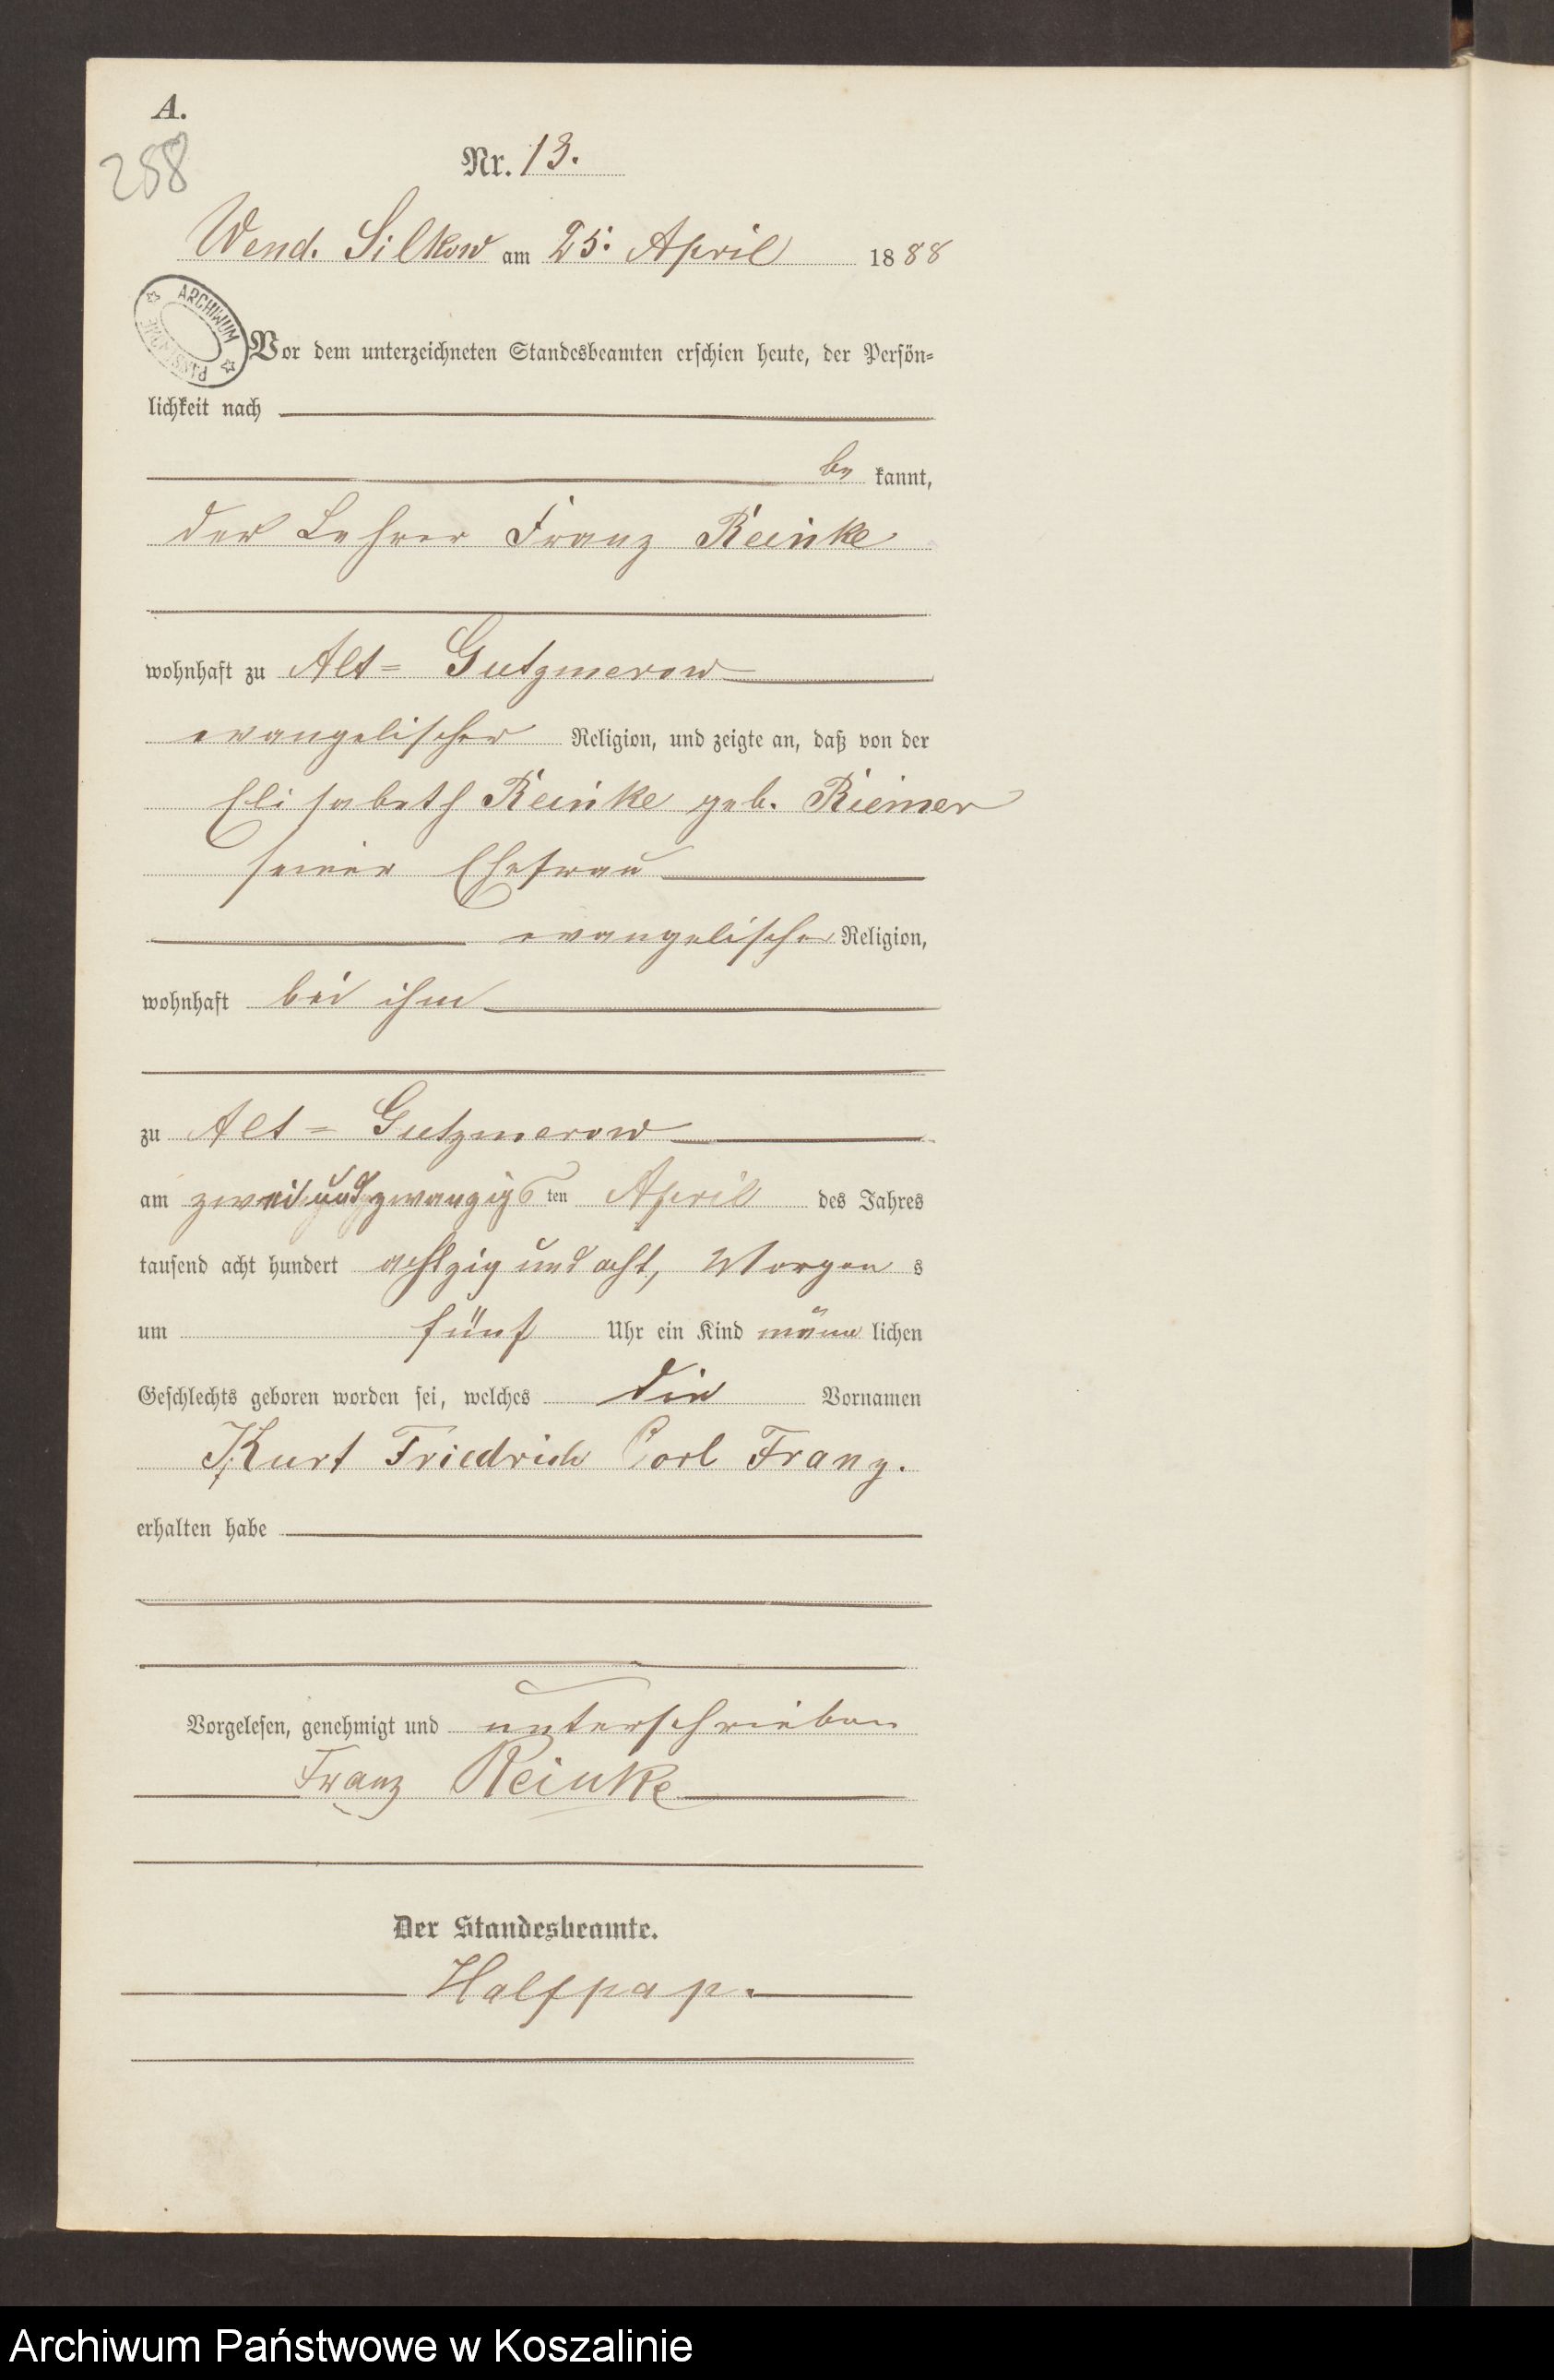 A.
258
Nr. 13.
Wend. Silkow am 25. April 1888
ARCHIWUM PAŃSTWOWE
Vor dem unterzeichneten Standesbeamten erschien heute, der Persön=
lichkeit nach
be kannt,
der Lehrer Franz Reinke
wohnhaft zu Alt= Gutzmerow
evangelischer Religion, und zeigte an, daß von der
Elisabeth Reinke geb. Riemer
seiner Ehefrau
evangelischer Religion,
wohnhaft bei ihm
zu Alt= Gutzmerow
am zwei und zwanzigs ten April des Jahres
tausend acht hundert achtzig und acht, Morgen s
um fünf Uhr ein Kind männ lichen
Geschlechts geboren worden sei, welches die Vornamen
Kurt Friedrich Carl Franz.
erhalten habe
Vorgelesen, genehmigt und unterschrieben
Franz Reinke
Der Standesbeamte.
Halfpap.
Archiwum Państwowe w Koszalinie